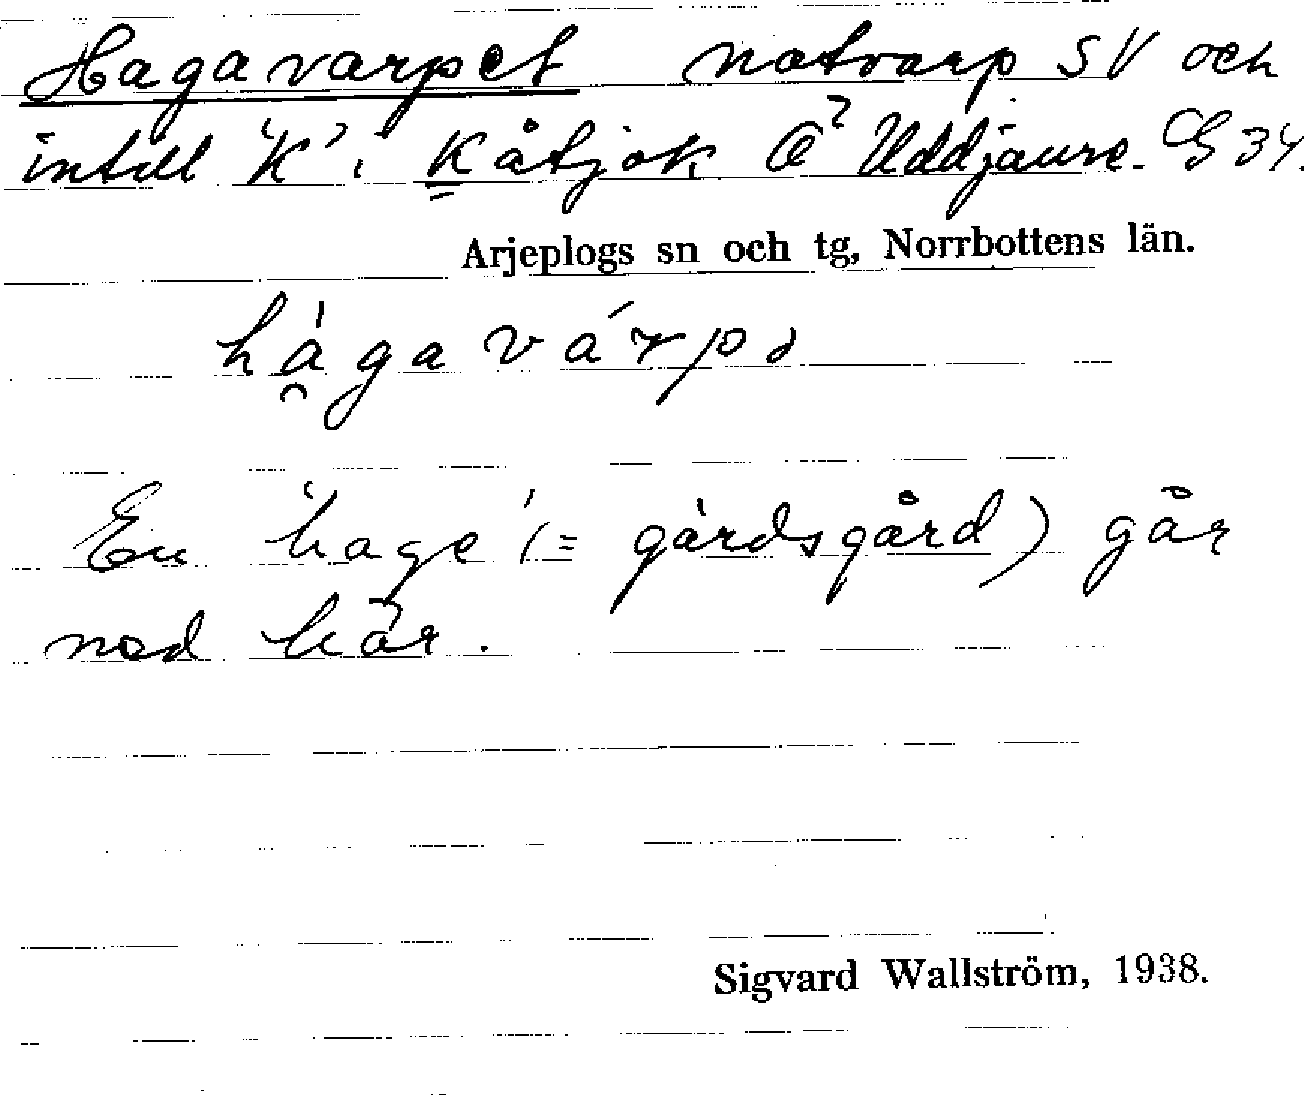 Hagavarpet notvarp SV och
intill 'K' i Kåtjok Ö Uddjaure. G 34.
Arjeplogs sn och tg, Norrbottens län.
hágavárpə
En 'hage' (= gärdsgård) går
ned här.
Sigvard Wallström, 1938.